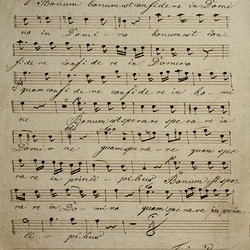 Bonum bonum est confidere in Domi
no in Domi - no bonum est con
fidere confide - re in Domino
quam confidere confidere in ho - mi
ne Bonum est sperare spe ra re in
Domi - ne quam spera - re quam spe
ra re in prin ci - pibus Bonum est spe
ra re in Do - mi no quam sperare in prin
ci - pibus